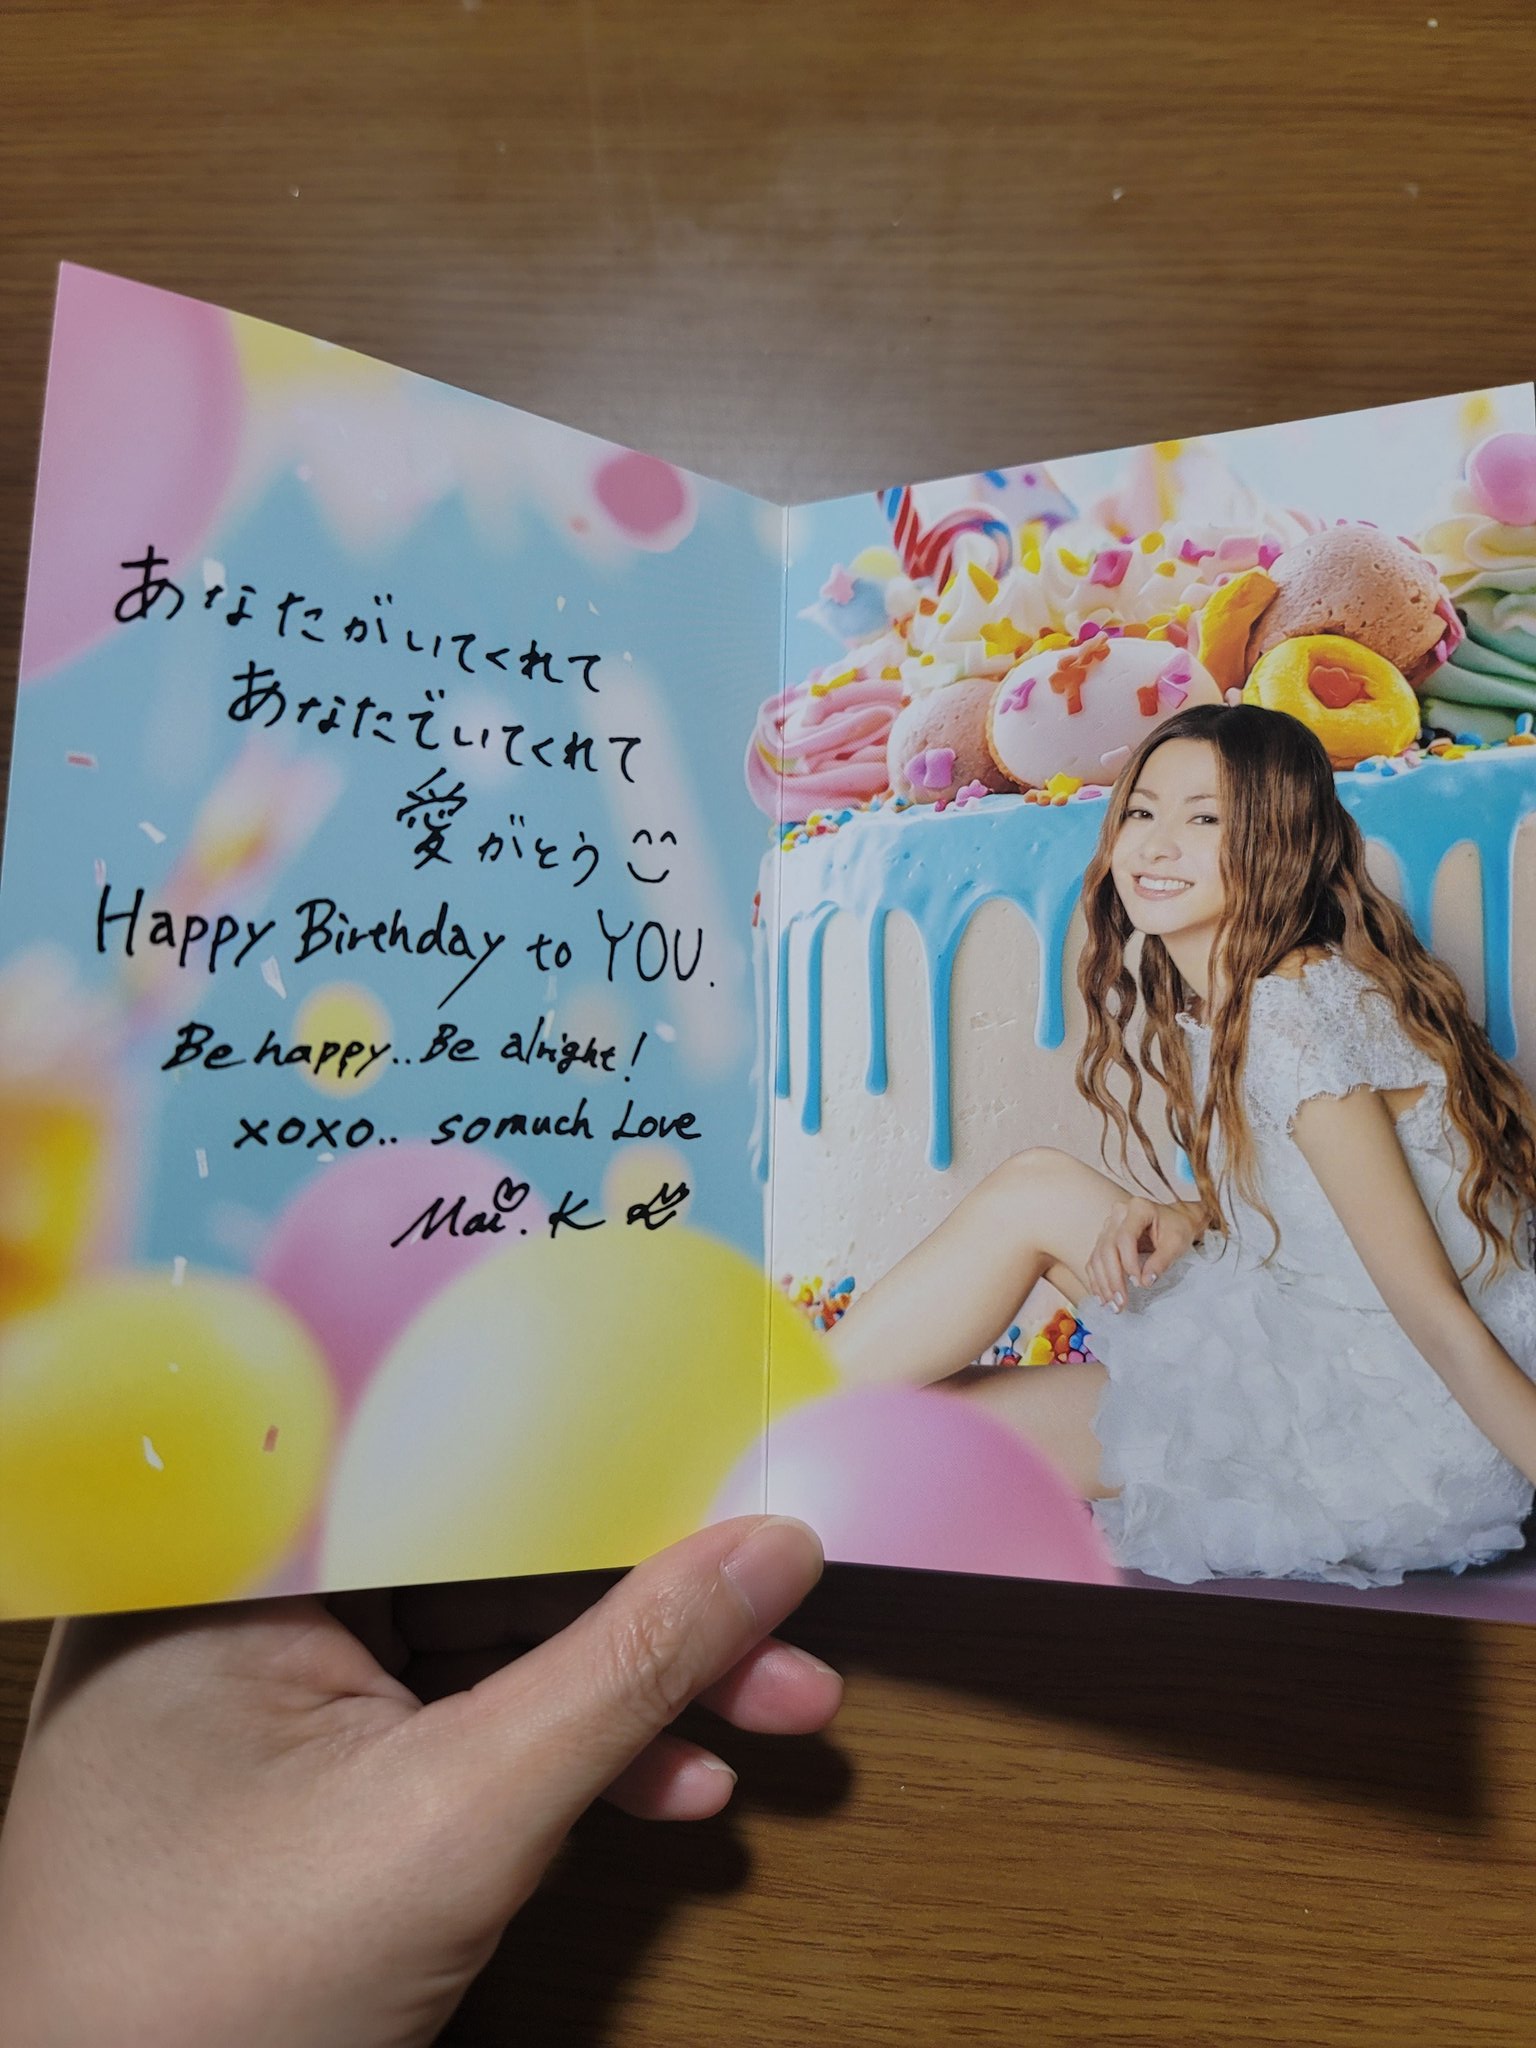 あなたがいてくれて
あなたでいてくれて
愛がとう
Happy Birthday to YOU.
Be happy.. Be alright!
xoxo.. so much Love
Mai. K